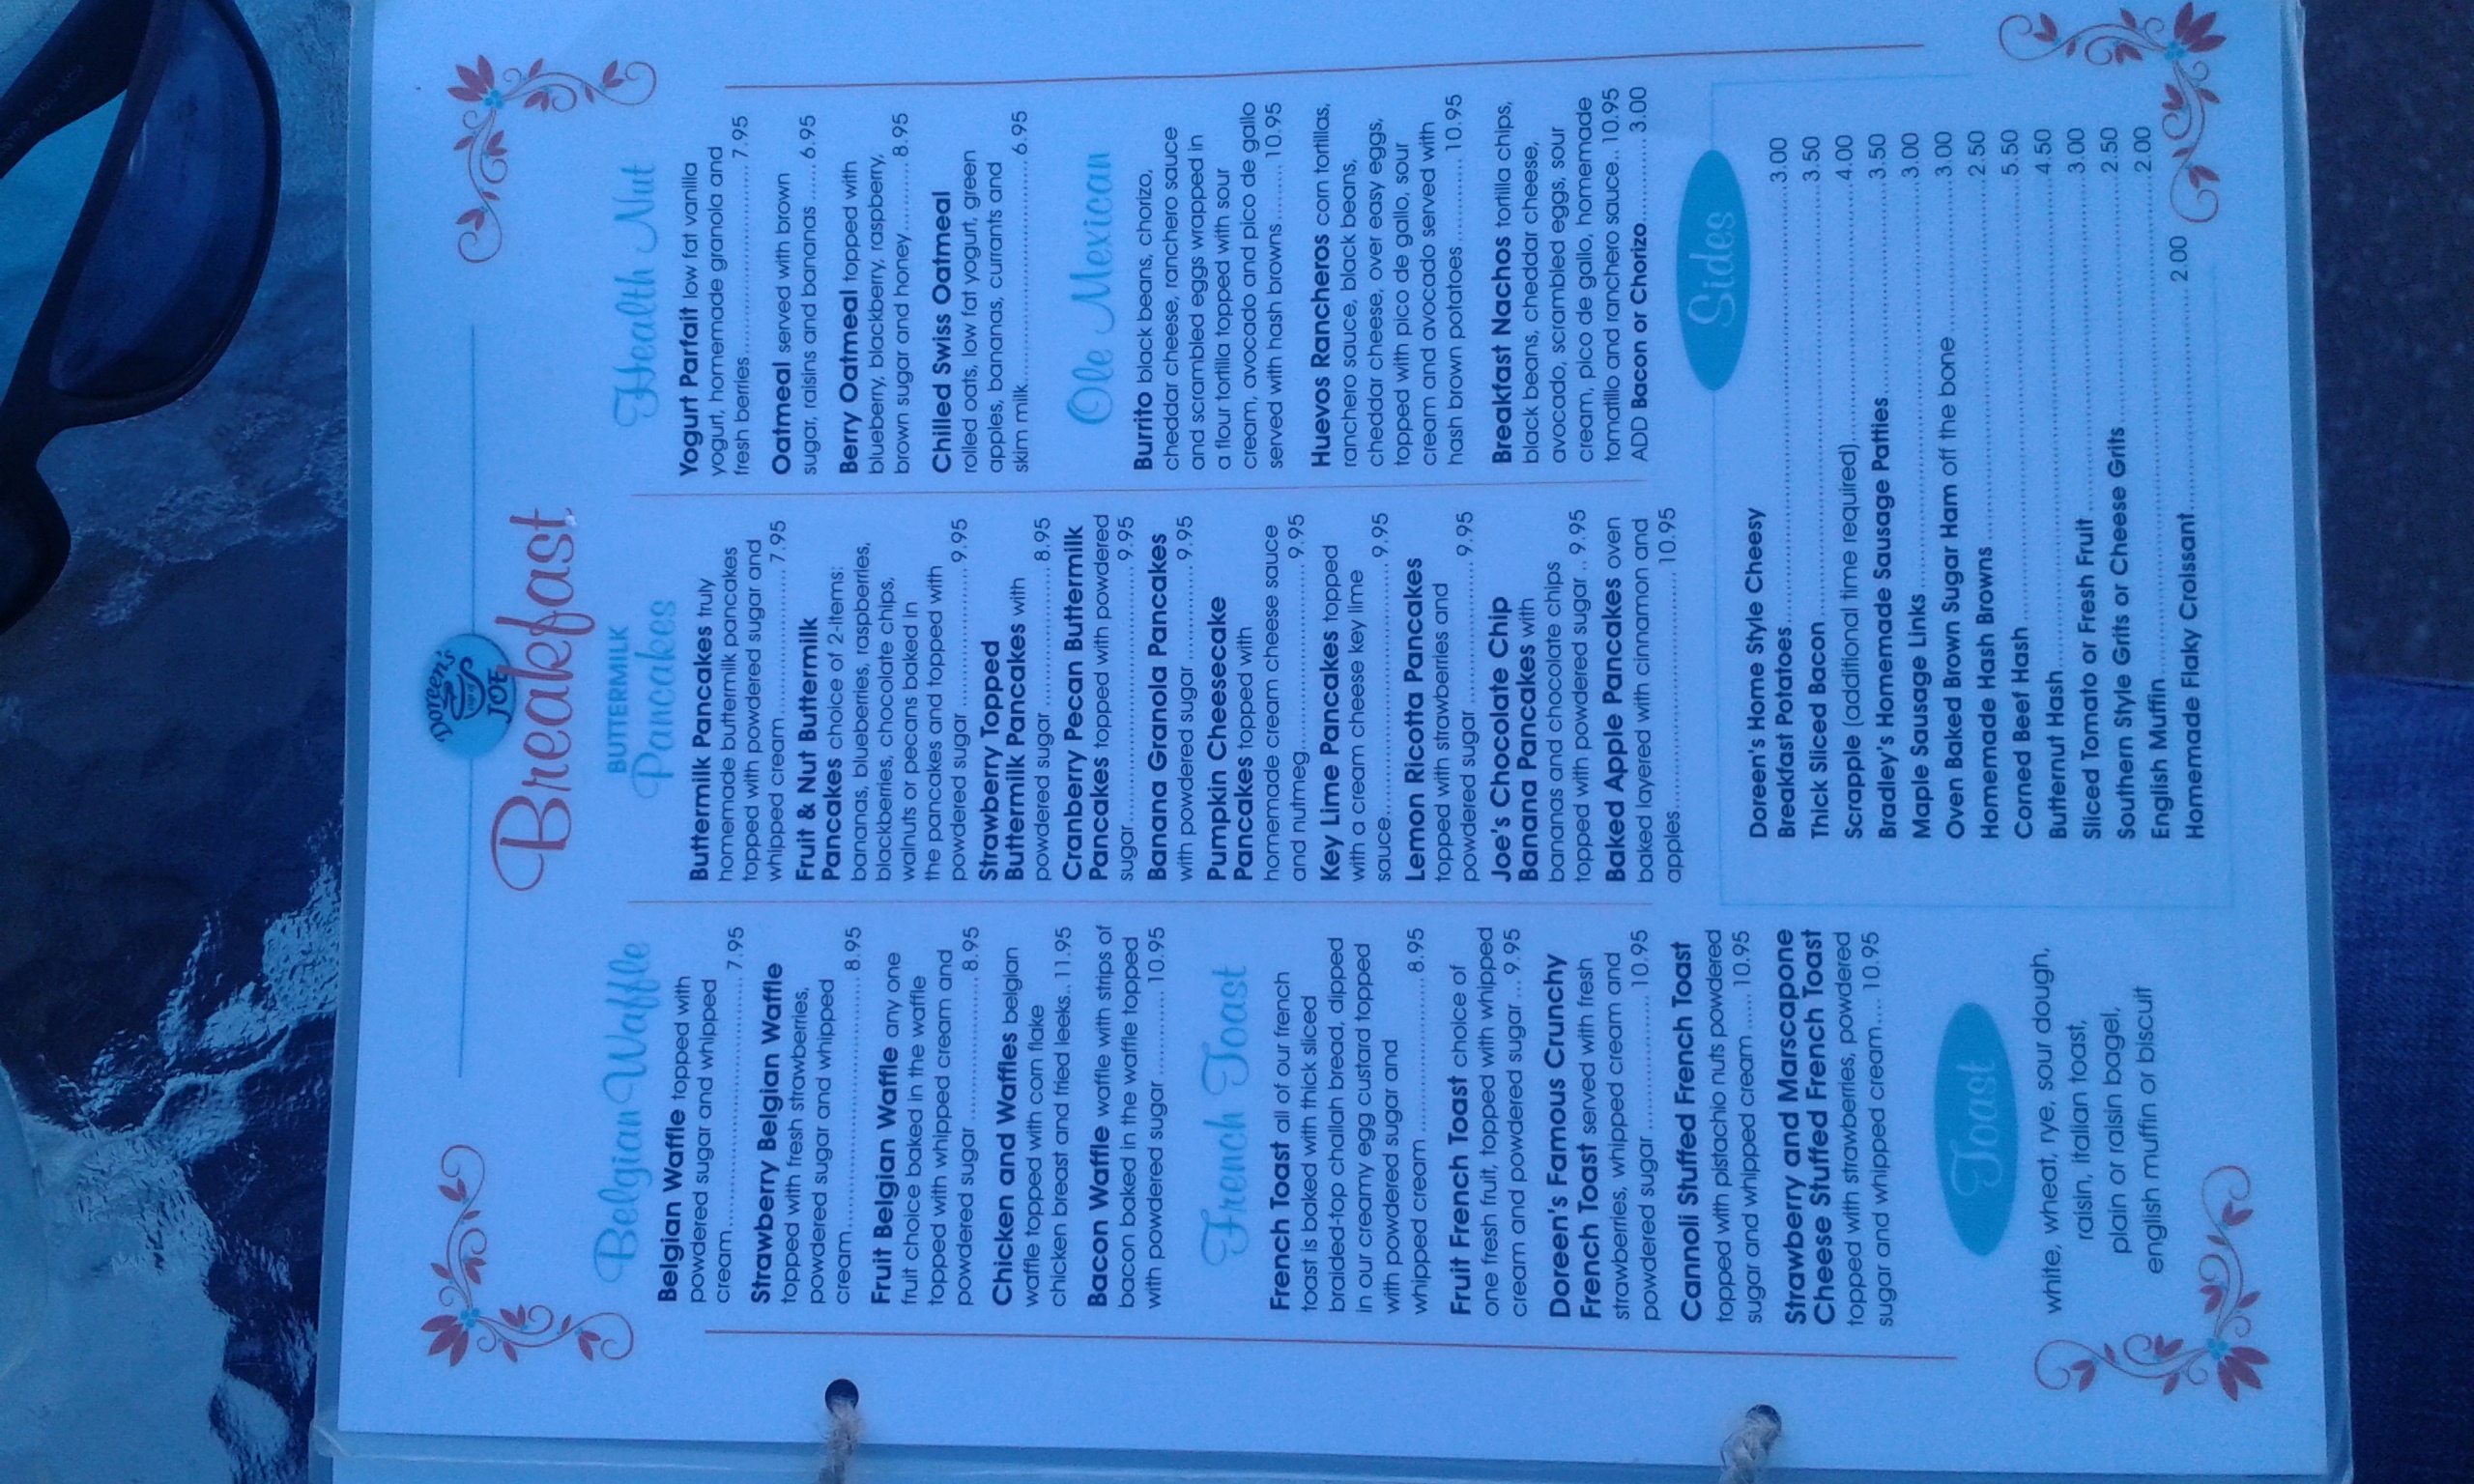 Doreen's
cup of
JOE
Breakfast
Belgian Waffle
Belgian Waffle topped with
powdered sugar and whipped
cream........................... 7.95
Strawberry Belgian Waffle
topped with fresh strawberries,
powdered sugar and whipped
cream........................... 8.95
Fruit Belgian Waffle any one
fruit choice baked in the waffle
topped with whipped cream and
powdered sugar ................ 8.95
Chicken and Waffles belgian
waffle topped with corn flake
chicken breast and fried leeks.. 11.95
Bacon Waffle waffle with strips of
bacon baked in the waffle topped
with powdered sugar ........... 10.95
French Toast
French Toast all of our french
toast is baked with thick sliced
braided-top challah bread, dipped
in our creamy egg custard topped
with powdered sugar and
whipped cream ................. 8.95
Fruit French Toast choice of
one fresh fruit, topped with whipped
cream and powdered sugar ... 9.95
Doreen's Famous Crunchy
French Toast served with fresh
strawberries, whipped cream and
powdered sugar ............... 10.95
Cannoli Stuffed French Toast
topped with pistachio nuts powdered
sugar and whipped cream ..... 10.95
Strawberry and Marscapone
Cheese Stuffed French Toast
topped with strawberries, powdered
sugar and whipped cream.... 10.95
Toast
white, wheat, rye, sour dough,
raisin, italian toast,
plain or raisin bagel,
english muffin or biscuit
BUTTERMILK
Pancakes
Buttermilk Pancakes truly
homemade buttermilk pancakes
topped with powdered sugar and
whipped cream................. 7.95
Fruit & Nut Buttermilk
Pancakes choice of 2-items:
bananas, blueberries, raspberries,
blackberries, chocolate chips,
walnuts or pecans baked in
the pancakes and topped with
powdered sugar ................ 9.95
Strawberry Topped
Buttermilk Pancakes with
powdered sugar ................ 8.95
Cranberry Pecan Buttermilk
Pancakes topped with powdered
sugar........................... 9.95
Banana Granola Pancakes
with powdered sugar ........... 9.95
Pumpkin Cheesecake
Pancakes topped with
homemade cream cheese sauce
and nutmeg..................... 9.95
Key Lime Pancakes topped
with a cream cheese key lime
sauce........................... 9.95
Lemon Ricotta Pancakes
topped with strawberries and
powdered sugar ................ 9.95
Joe's Chocolate Chip
Banana Pancakes with
bananas and chocolate chips
topped with powdered sugar .. 9.95
Baked Apple Pancakes oven
baked layered with cinnamon and
apples.......................... 10.95
Health Nut
Yogurt Parfait low fat vanilla
yogurt, homemade granola and
fresh berries..................... 7.95
Oatmeal served with brown
sugar, raisins and bananas ...... 6.95
Berry Oatmeal topped with
blueberry, blackberry, raspberry,
brown sugar and honey.......... 8.95
Chilled Swiss Oatmeal
rolled oats, low fat yogurt, green
apples, bananas, currants and
skim milk......................... 6.95
Ole Mexican
Burrito black beans, chorizo,
cheddar cheese, ranchero sauce
and scrambled eggs wrapped in
a flour tortilla topped with sour
cream, avocado and pico de gallo
served with hash browns ........ 10.95
Huevos Rancheros corn tortillas,
ranchero sauce, black beans,
cheddar cheese, over easy eggs,
topped with pico de gallo, sour
cream and avocado served with
hash brown potatoes ........... 10.95
Breakfast Nachos tortilla chips,
black beans, cheddar cheese,
avocado, scrambled eggs, sour
cream, pico de gallo, homemade
tomatillo and ranchero sauce.. 10.95
ADD Bacon or Chorizo........... 3.00
Sides
Doreen's Home Style Cheesy
Breakfast Potatoes........................ 3.00
Thick Sliced Bacon........................ 3.50
Scrapple (additional time required)........ 4.00
Bradley's Homemade Sausage Patties......... 3.50
Maple Sausage Links........................ 3.00
Oven Baked Brown Sugar Ham off the bone..... 3.00
Homemade Hash Browns ...................... 2.50
Corned Beef Hash........................... 5.50
Butternut Hash............................. 4.50
Sliced Tomato or Fresh Fruit............... 3.00
Southern Style Grits or Cheese Grits....... 2.50
English Muffin............................. 2.00
Homemade Flaky Croissant................... 2.00